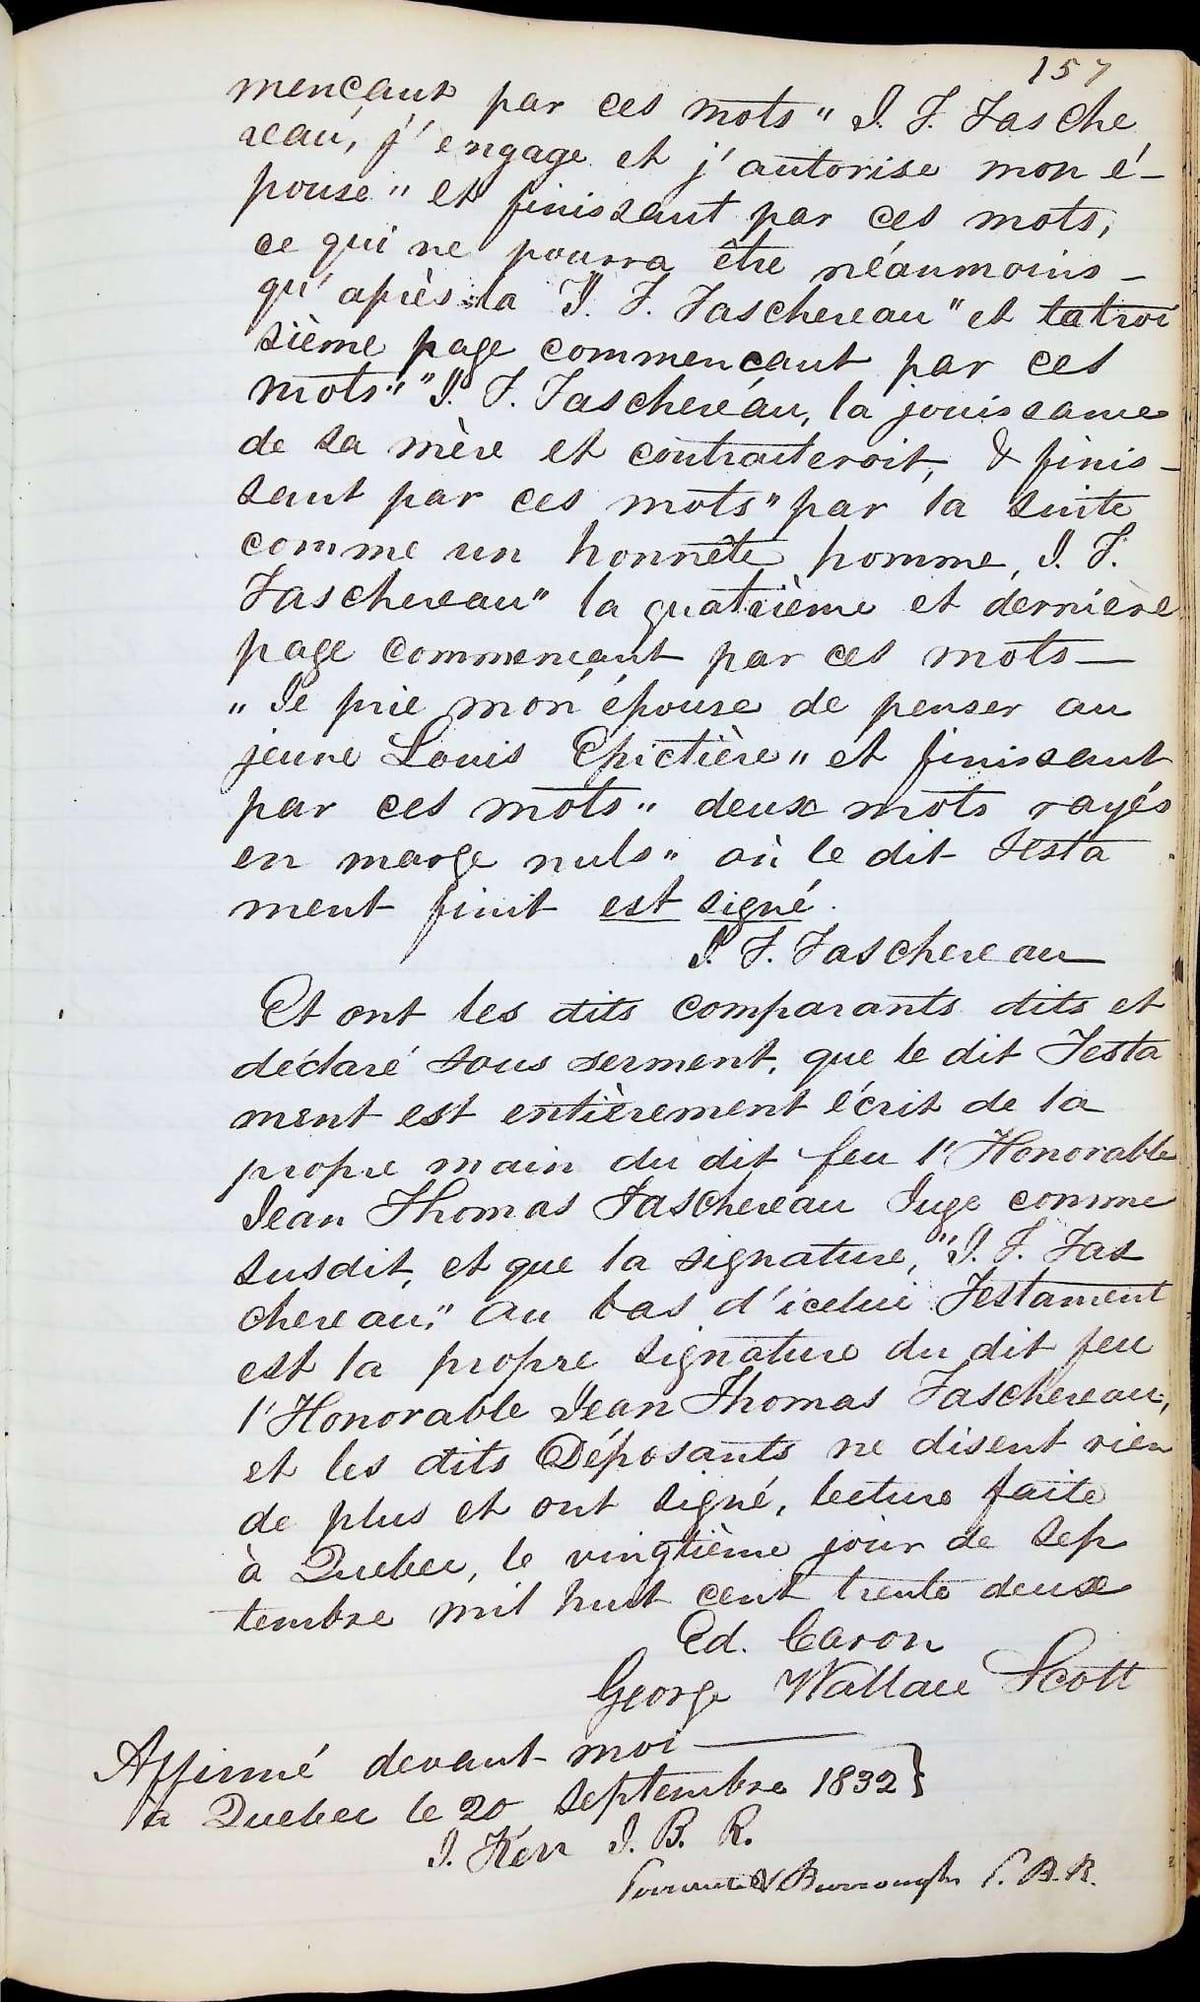 157
mençant par ces mots " J. T. Tasche
reau, j'engage et j'autorise mon é-
pouse " et finissant par ces mots,
ce qui ne pourra être néaumoins -
qu'après la J. T. Taschereau" et la troi
sième page commençant par ces
mots " J. T. Taschereau, la jouissance
de sa mère et contracteroit, & finis-
sant par ces mots " par la suite
comme un honnête homme, J. T.
Taschereau" la quatrième et dernière
page commençant par ces mots —
" Je prie mon épouse de penser au
jeune Louis Epictière " et finissant
par ces mots " deux mots rayés
en marge nuls " où le dit Testa
ment finit est signé.
J. T. Taschereau
Et ont les dits comparants dits et
déclaré sous serment, que le dit Testa
ment est entièrement écrit de la
propre main du dit feu l'Honorable
Jean Thomas Taschereau Juge comme
susdit, et que la signature, "J. T. Tas
chereau," au bas d'icelui Testament
est la propre signature du dit feu
l'Honorable Jean Thomas Taschereau,
et les dits Déposants ne disent rien
de plus et ont signé, lecture faite
à Quebec, le vingtième jour de Sep
tembre mil huit cent trente deux
Ed. Caron
George Wallace Scott
Affirmé devant moi —
à Quebec le 20 Septembre 1832 }
J. Kerr J. B. R.
Burroughs P. B. R.